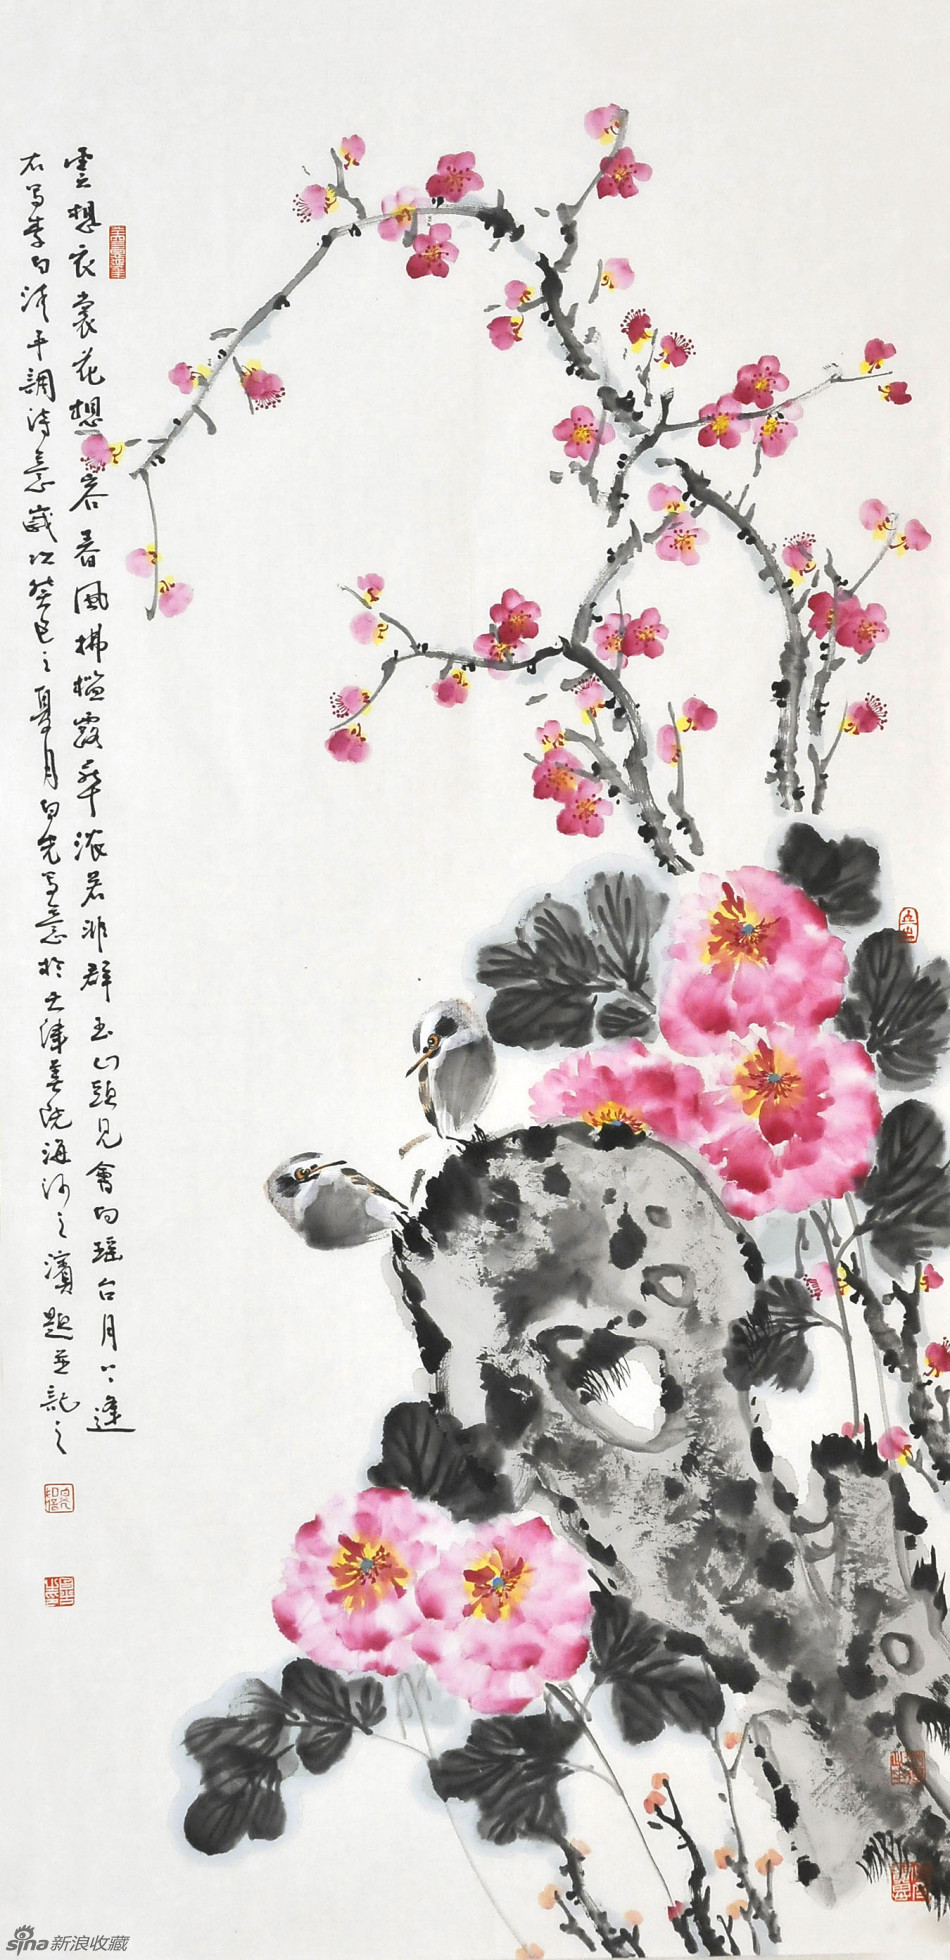 雲想衣裳花想容春風拂檻露華濃若非群玉山頭見會向瑶台月下逢
右写李白清平調詩意歲次癸巳之夏月白光写意於天津美院海河之濱題並記之
sina新浪收藏